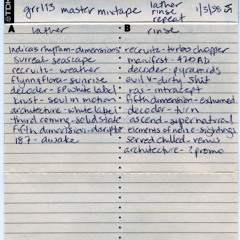 TDK
grrl13 master mixtape
lather
rinse
repeat
1/3/98
A
B
lather
rinse
indicas rhythm - dimensions
surreal - seascape
recruitz - weather
flynn & flora - sunrise
decoder - EP white label
krust - soul in motion
architecture - white label
third coming - solid state
fifth dimension - disrupta
187 - awake
recruitz - turbo chopper
manifest - 470 AD
decoder - pyramids
evil v - dirty shit
ras - intracept
fifth dimension - exhumed
decoder - turn
ascend - supernatural
elements of noise - sightings
served chilled - venus
architecture - ? promo